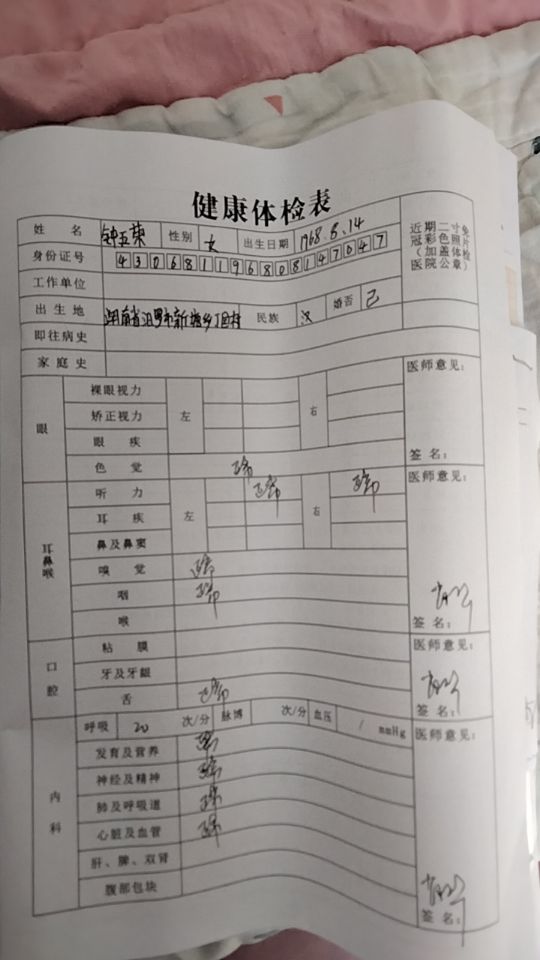 健康体检表
姓 名 钟五荣 性别 女 出生日期 1968.8.14
近期二寸免冠彩色照片(加盖体检医院公章)
身份证号 430681196808147047
工作单位
出生地 湖南省汨罗市新塘乡 村 民族 汉 婚否 已
即往病史
家庭史
眼
裸眼视力 左 右
矫正视力
眼 疾
色 觉 正常
医师意见:
签 名:
耳鼻喉
听 力 左 正常 右 正常
耳 疾
鼻及鼻窦
嗅 觉 正常
咽 正常
喉
医师意见:
签 名:
口腔
粘 膜
牙及牙龈
舌 正常
医师意见:
签 名:
内科
呼吸 20 次/分 脉博 次/分 血压 / mmHg
发育及营养 正常
神经及精神 正常
肺及呼吸道 正常
心脏及血管 正常
肝、脾、双肾
腹部包块
医师意见:
签 名: